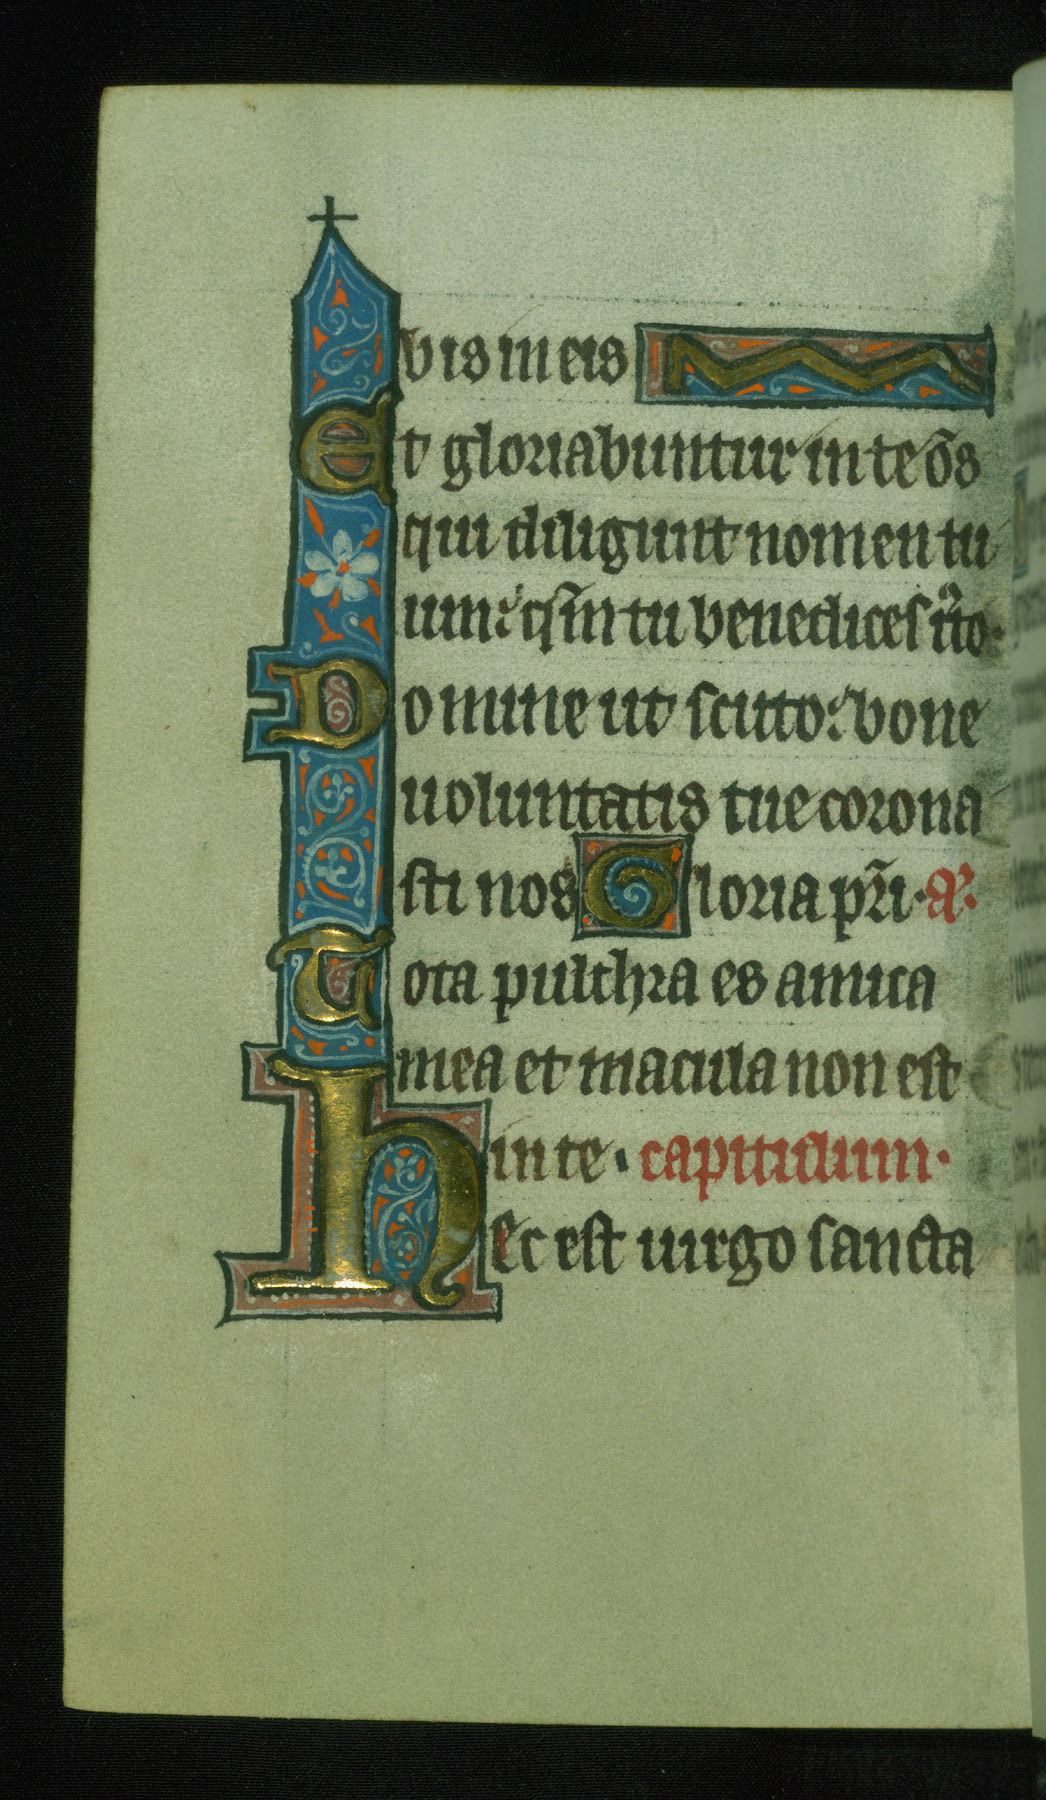 bis in eis
Et gloriabuntur in te o͞s
qui diligunt nomen tu
um: q͞m tu benedices iu͞sto.
Domine ut scuto: bone
uoluntatis tue corona
sti nos Gloria p͞ri. A͞.
Tota pulchra es amica
mea et macula non est
in te. capitulum.
Hec est uirgo sancta